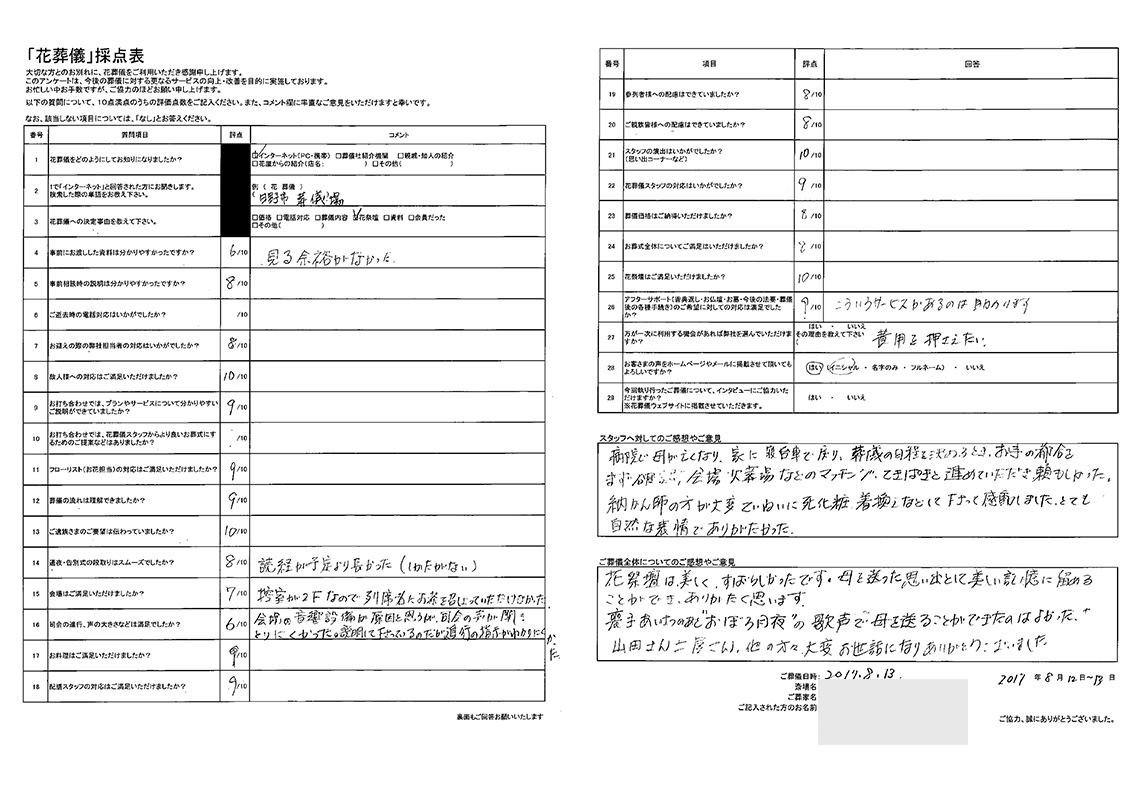 「花葬儀」採点表
大切な方とのお別れに、花葬儀をご利用いただき感謝申し上げます。
このアンケートは、今後の葬儀に対する更なるサービスの向上・改善を目的に実施しております。
お忙しい中お手数ですが、ご協力のほどお願い申し上げます。
以下の質問について、10点満点のうちの評価点数をご記入ください。また、コメント欄に率直なご意見をいただけますと幸いです。
なお、該当しない項目については、「なし」とお答えください。
番号 質問項目 評点 コメント
1 花葬儀をどのようにしてお知りになりましたか? ☑インターネット(PC・携帯) □葬儀社紹介機関 □親戚・知人の紹介
□花屋からの紹介(店名: ) □その他( )
2 1で「インターネット」と回答された方にお聞きします。
検索した際の単語をお教え下さい。
例 ( 花 葬儀 )
( 日野市 葬儀場
3 花葬儀への決定事由を教えて下さい。 □価格 □電話対応 □葬儀内容 ☑花祭壇 □資料 □会員だった
□その他( )
4 事前にお渡しした資料は分かりやすかったですか? 6/10 見る余裕がなかった
5 事前相談時の説明は分かりやすかったですか? 8/10
6 ご逝去時の電話対応はいかがでしたか? /10
7 お迎えの際の弊社担当者の対応はいかがでしたか? 8/10
8 故人様への対応はご満足いただけましたか? 10/10
9 お打ち合わせでは、プランやサービスについて分かりやすい
ご説明ができていましたか? 9/10
10 お打ち合わせでは、花葬儀スタッフからより良いお葬式に
するためのご提案などはありましたか? /10
11 フローリスト(お花担当)の対応はご満足いただけましたか? 9/10
12 葬儀の流れは理解できましたか? 9/10
13 ご遺族さまのご要望は伝わっていましたか? 10/10
14 通夜・告別式の段取りはスムーズでしたか? 8/10 読経が予定より長かった(しかたがない)
15 会場はご満足いただけましたか? 7/10 控室が2Fなので列席者にお茶を召し上っていただけなかった
16 司会の進行、声の大きさなどは満足でしたか? 6/10 会場の音響設備が原因と思うが、司会の声が聞き
とりにくかった。説明して下さっているのだが進行の指示がわかりにくかった。
17 お料理はご満足いただけましたか? 9/10
18 配膳スタッフの対応はご満足いただけましたか? 9/10
裏面もご回答お願いいたします
番号 項目 評点 回答
19 参列者様への配慮はできていましたか? 8/10
20 ご親族皆様への配慮はできていましたか? 8/10
21 スタッフの演出はいかがでしたか?
(思い出コーナーなど) 10/10
22 花葬儀スタッフの対応はいかがでしたか? 9/10
23 葬儀価格はご納得いただけましたか? 8/10
24 お葬式全体についてご満足はいただけましたか? 8/10
25 花祭壇はご満足いただけましたか? 10/10
26 アフターサポート(香典返し・お仏壇・お墓・今後の法要・葬儀
後の各種手続き)のご希望に対しての対応は満足でした
か? 9/10 こういうサービスがあるのは助かります
27 万が一次に利用する機会があれば弊社を選んでいただけま
すか?
はい ・ いいえ
その理由を教えて下さい
( 費用を押さえたい
28 お客さまの声をホームページやメールに掲載させて頂いても
よろしいですか? はい (イニシャル ・ 名字のみ ・ フルネーム) ・ いいえ
29 今回執り行ったご葬儀について、インタビューにご協力いた
だけますか?
※花葬儀ウェブサイトに掲載させていただきます。
はい ・ いいえ
スタッフへ対してのご感想やご意見
病院で母が亡くなり、家に寝台車で戻り、葬儀の日程を決めるとき、お寺の都合を
まず確認、会場火葬場などのマッチング、てきぱきと進めていただき頼もしかった。
納かん師の方が大変ていねいに死化粧 着換えなどして下さって感動しました、とても
自然な表情でありがたかった。
ご葬儀全体についてのご感想やご意見
花祭壇は美しく、すばらしかったです。母を送った思い出として美しい記憶に留める
ことができ、ありがたく思います。
喪主あいさつのあと"おぼろ月夜"の歌声で母を送ることができたのはよかった。
山田さん 土屋さん、他の方々、大変お世話になりありがとうございました
ご葬儀日時: 2017.8.13.
斎場名
ご葬家名
ご記入された方のお名前
2017 年 8 月 12日~13 日
ご協力、誠にありがとうございました。